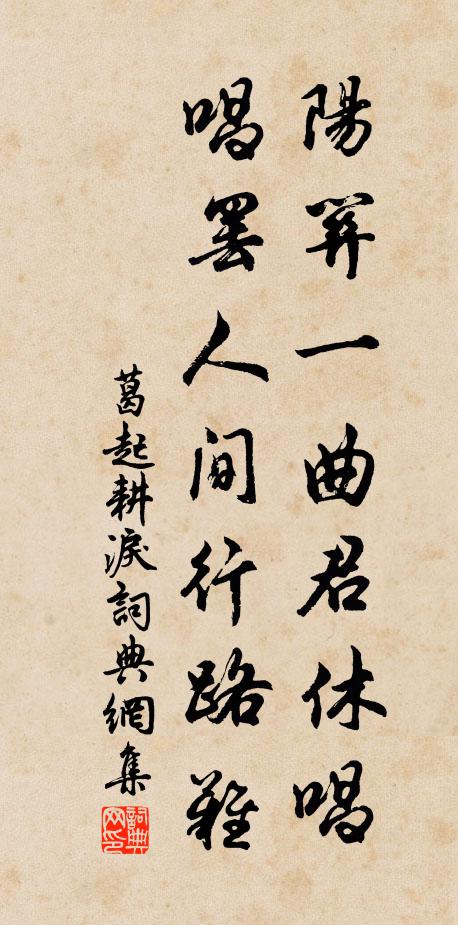 陽關一曲君休唱
唱罷人間行路難
葛起耕淚詞典網集
詞典网印